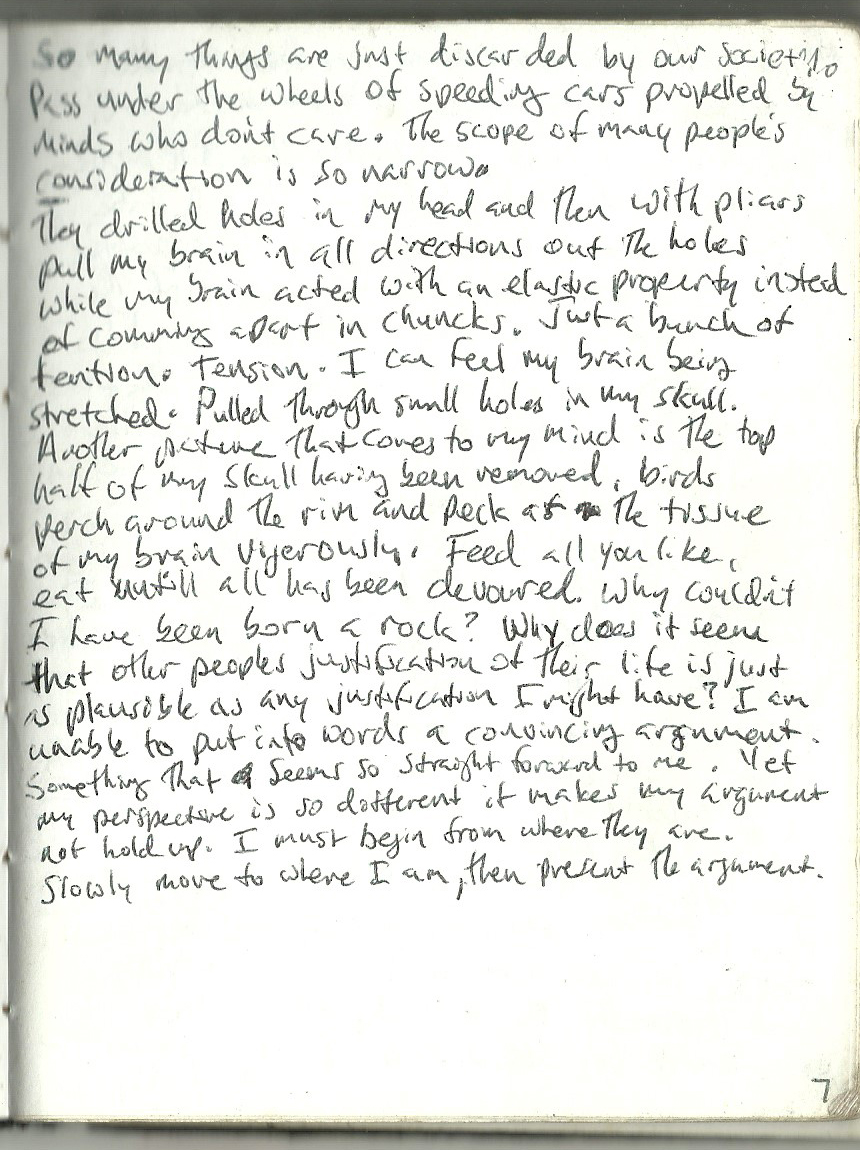 So many things are just discarded by our society.
Pass under the wheels of speeding cars propelled by
minds who don't care. The scope of many people's
consideration is so narrow.
They drilled holes in my head and then with pliars
pull my brain in all directions out the holes
while my brain acted with an elastic property insted
of comming apart in chuncks. Just a bunch of
tention. Tension. I can feel my brain being
stretched. Pulled through small holes in my skull.
Another picture that comes to my mind is the top
half of my skull having been removed, birds
perch around the rim and peck at the tissue
of my brain vigerously. Feed all you like,
eat untill all has been devoured. Why couldn't
I have been born a rock? Why does it seem
that other peoples justification of their life is just
as plausible as any justification I might have? I am
unable to put into words a convincing argument.
Something that seems so straight forward to me. Yet
my perspective is so different it makes my argument
not hold up. I must begin from where they are.
Slowly move to where I am, then present the argument.
7